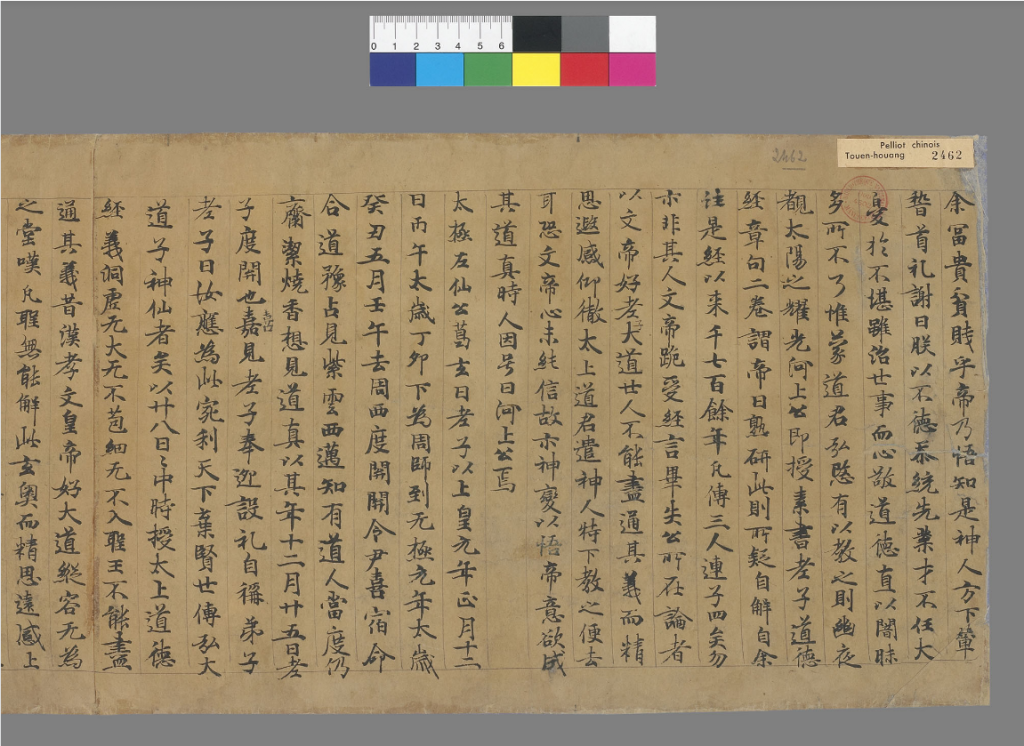 余冨貴貧賎乎帝乃悟知是神人方下輦
稽首礼謝曰朕以不德忝統先業才不任大
憂於不堪雖治世事而心敬道德直以闇昧
多所不了惟蒙道君弘愍有以教之則幽夜
覩太陽之耀光河上公即授素書老子道德
經章句二卷謂帝曰熟研此則所疑自解自余
注是經以来千七百餘年凡傳三人連子四矣勿
示非其人文帝跪受經言畢失公所在論者
以文帝好老大道世人不能盡通其義而精
思遐感仰徹太上道君遣神人特下教之便去
耳恐文帝心未純信故示神變以悟帝意欲成
其道真時人因号曰河上公焉
太極左仙公葛玄曰老子以上皇元年正月十二
日丙午太歲丁卯下為周師到无極元年太歲
癸丑五月壬午去周西度開開令尹喜宿命
合道豫占見紫雲西邁知有道人當度仍
齋潔燒香想見道真以其年十二月廿五日老
子度開也嘉見老子奉迎設礼自稱弟子
老子曰汝應為此宛利天下棄賢世傳弘大
道子神仙者矣以廿八日々中時授太上道德
經義洞虛无大无不苞細无不入聖王不能盡
通其義昔漢孝文皇帝好大道縱容无為
之堂嘆凡聖無能解此玄奧而精思遠感上
Pelliot chinois
Touen-houang 2462
2462
0 1 2 3 4 5 6